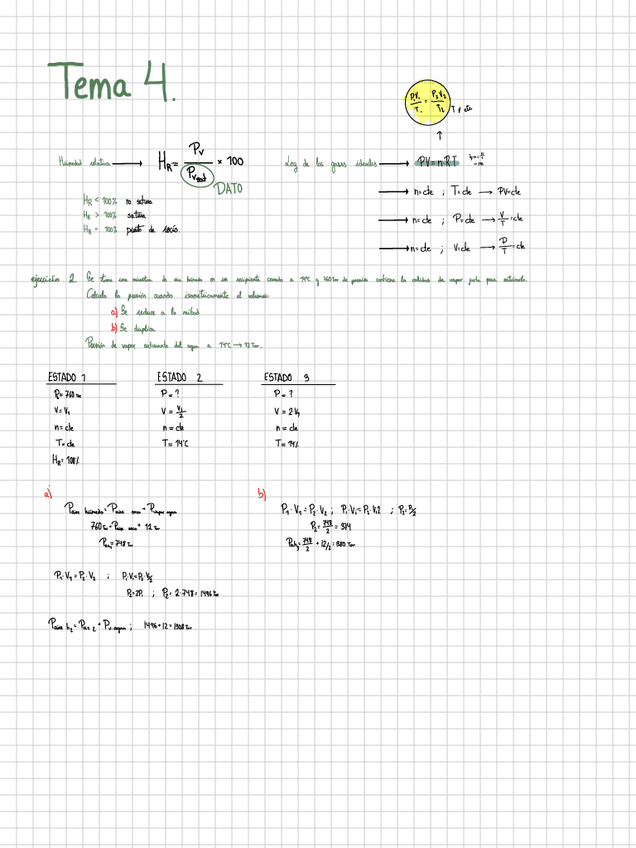 Tema 4.
P₁V₁/T₁ = P₂V₂/T₂
Humedad relativa → H_R = P_V / P_Vsat × 100
DATO
Ley de los gases ideales → PV = nRT
H_R < 100% no satura
H_R > 100% satura
H_R = 100% punto de rocío.
n=cte ; T=cte → PV=cte
n=cte ; P=cte → V/T = cte
n=cte ; V=cte → P/T = cte
ejercicio 2. Se tiene una muestra de aire húmedo en un recipiente cerrado a 14ºC y 760 Torr de presión contiene la cantidad de vapor justa para saturarlo.
Calcula la presión cuando isométricamente el volumen:
a) Se reduce a la mitad
b) Se duplica
Presión de vapor saturante del agua a 14ºC → 12 Torr.
ESTADO 1
P₁= 760
V= V₁
n= cte
T= cte
H_R= 100%
ESTADO 2
P = ?
V = V₁/2
n = cte
T = 14ºC
ESTADO 3
P = ?
V = 2V₁
n = cte
T = 14
a)
P aire húmedo = P aire seco + P vapor agua
760 = P aire seco + 12
= 748
P₁·V₁ = P₂·V₂ ; P₁·V₁ = P₂·V₁/2
P₂ = 2P₁ ; P₂ = 2·748 = 1496
P aire h₂ = P as 2 + P v. agua ; 1496+12 = 1508
b)
P₁·V₁ = P₂·V₂ ; P₁·V₁ = P₂·V₁2 ; P₂ = P₁/2
P₂ = 748/2 = 374
748/2 + 12/2 = 380